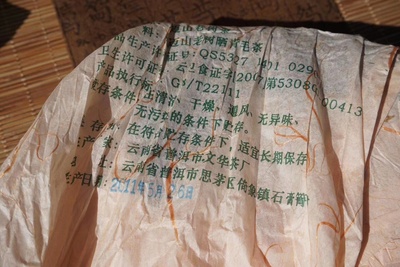 料：
山老树晒青毛茶
生产许可证号：QS5327 1401 029
卫生许可证：云 食证字(2007)第53080 00413
产品执行标 GB/T22111
贮存条件：清洁、干燥、通风、无异味、
无污染的条件下贮存。
保 存 在符合贮存条件下，适宜长期保存
生产 云南省普洱市文华茶厂
云南省普洱市思茅区倚象镇石膏箐
生产日期 2011年5月16日